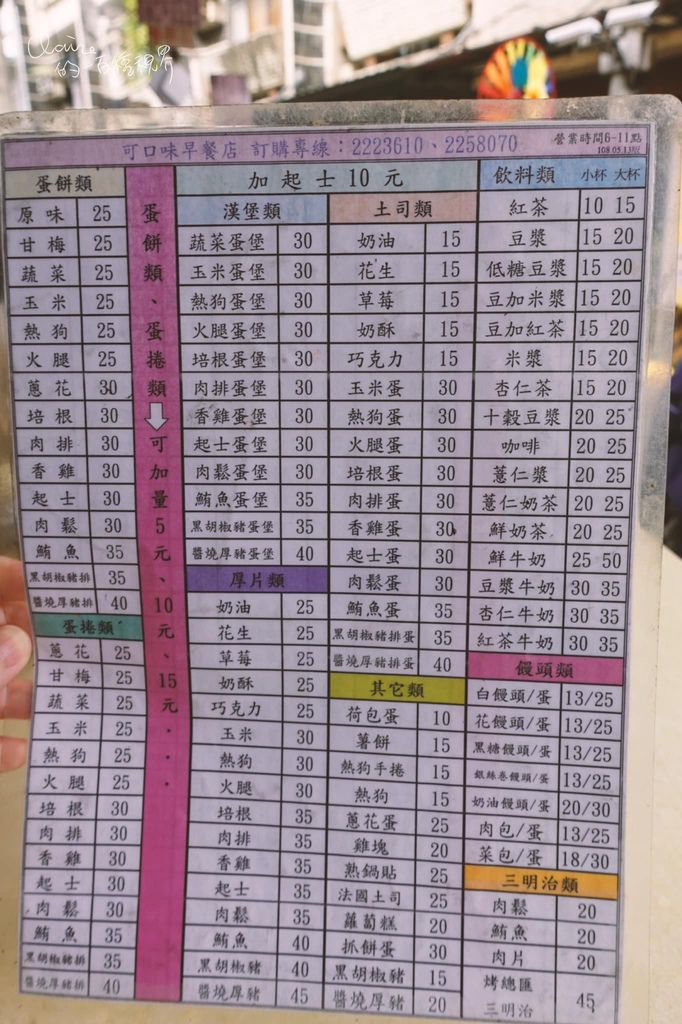 Claire
的
視界
可口味早餐店 訂購專線：2223610、2258070
營業時間6-11點
108.05.13版
蛋餅類
原味 25
甘梅 25
蔬菜 25
玉米 25
熱狗 25
火腿 25
蔥花 30
培根 30
肉排 30
香雞 30
起士 30
肉鬆 30
鮪魚 35
黑胡椒豬排 35
醬燒厚豬排 40
蛋捲類
蔥花 25
甘梅 25
蔬菜 25
玉米 25
熱狗 25
火腿 25
培根 30
肉排 30
香雞 30
起士 30
肉鬆 30
鮪魚 35
黑胡椒豬排 35
醬燒厚豬排 40
蛋餅類、蛋捲類⬇可加量5元、10元、15元・・・
加起士10元
漢堡類
蔬菜蛋堡 30
玉米蛋堡 30
熱狗蛋堡 30
火腿蛋堡 30
培根蛋堡 30
肉排蛋堡 30
香雞蛋堡 30
起士蛋堡 30
肉鬆蛋堡 30
鮪魚蛋堡 35
黑胡椒豬蛋堡 35
醬燒厚豬蛋堡 40
厚片類
奶油 25
花生 25
草莓 25
奶酥 25
巧克力 25
玉米 30
熱狗 30
火腿 30
培根 35
肉排 35
香雞 35
起士 35
肉鬆 35
鮪魚 40
黑胡椒豬 40
醬燒厚豬 45
土司類
奶油 15
花生 15
草莓 15
奶酥 15
巧克力 15
玉米蛋 30
熱狗蛋 30
火腿蛋 30
培根蛋 30
肉排蛋 30
香雞蛋 30
起士蛋 30
肉鬆蛋 30
鮪魚蛋 35
黑胡椒豬排蛋 35
醬燒厚豬排蛋 40
其它類
荷包蛋 10
薯餅 15
熱狗手捲 15
熱狗 15
蔥花蛋 25
雞塊 20
熟鍋貼 25
法國土司 25
蘿蔔糕 20
抓餅蛋 30
黑胡椒豬 15
醬燒厚豬 20
飲料類 小杯 大杯
紅茶 10 15
豆漿 15 20
低糖豆漿 15 20
豆加米漿 15 20
豆加紅茶 15 20
米漿 15 20
杏仁茶 15 20
十穀豆漿 20 25
咖啡 20 25
薏仁漿 20 25
薏仁奶茶 20 25
鮮奶茶 20 25
鮮牛奶 25 50
豆漿牛奶 30 35
杏仁牛奶 30 35
紅茶牛奶 30 35
饅頭類
白饅頭/蛋 13/25
花饅頭/蛋 13/25
黑糖饅頭/蛋 13/25
銀絲卷饅頭/蛋 13/25
奶油饅頭/蛋 20/30
肉包/蛋 13/25
菜包/蛋 18/30
三明治類
肉鬆 20
鮪魚 20
肉片 20
烤總匯
三明治 45